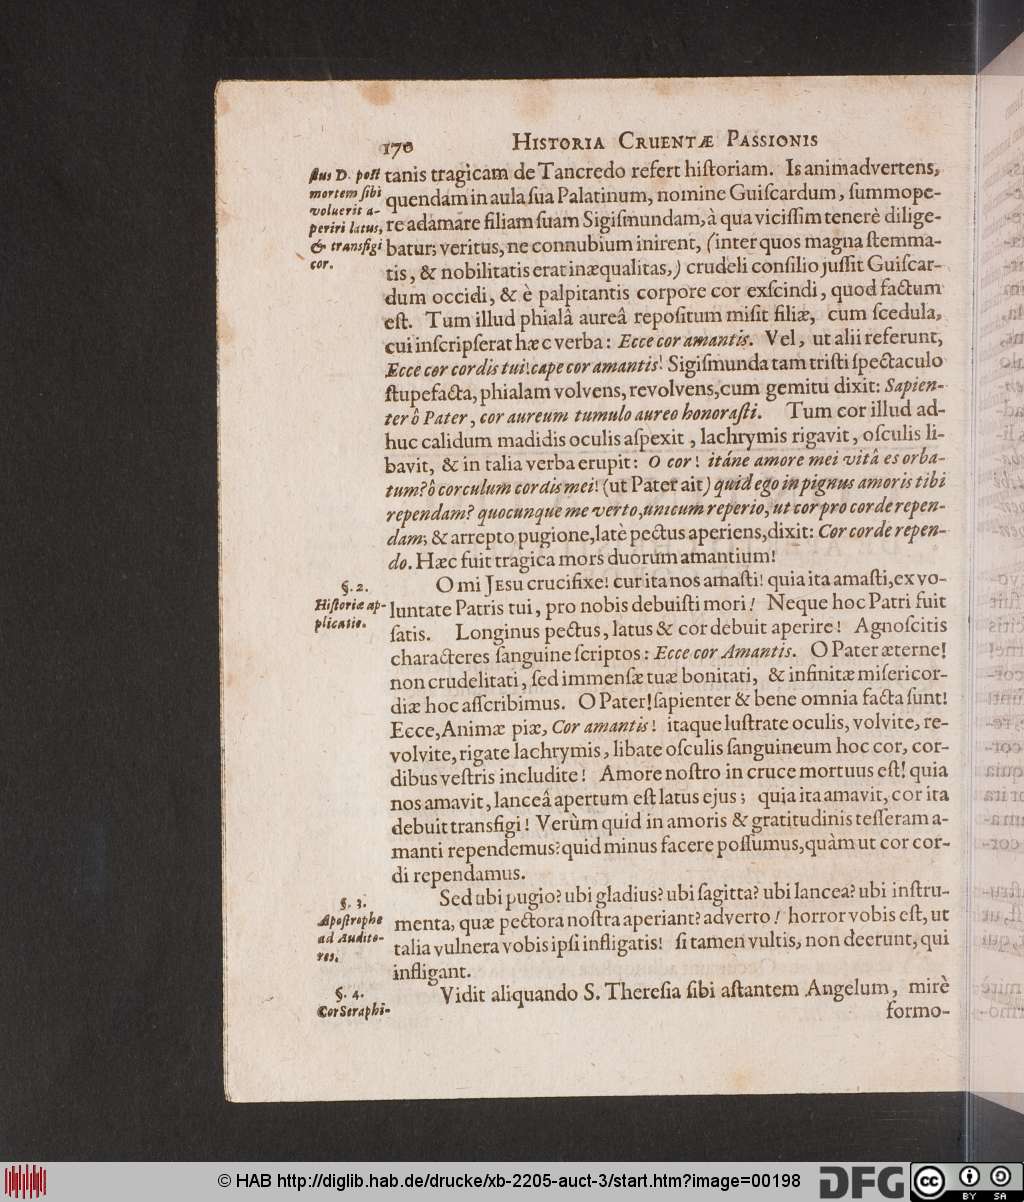 170 HISTORIA CRUENTÆ PASSIONIS
ſtus D. poſt
mortem ſibi
voluerit a-
periri latus,
& transfigi
cor.
tanis tragicam de Tancredo refert hiſtoriam. Is animadvertens,
quendam in aula ſua Palatinum, nomine Guiſcardum, ſummope-
re adamare filiam ſuam Sigiſmundam, à qua viciſſim tenerè dilige-
batur; veritus, ne connubium inirent, (inter quos magna ſtemma-
tis, & nobilitatis erat inæqualitas,) crudeli conſilio juſſit Guiſcar-
dum occidi, & è palpitantis corpore cor exſcindi, quod factum
eſt. Tum illud phialâ aureâ repoſitum miſit filiæ, cum ſcedula,
cui inſcripſerat hæc verba: Ecce cor amantis. Vel, ut alii referunt,
Ecce cor cordis tui! cape cor amantis! Sigiſmunda tam triſti ſpectaculo
ſtupefacta, phialam volvens, revolvens, cum gemitu dixit: Sapien-
ter ô Pater, cor aureum tumulo aureo honoraſti. Tum cor illud ad-
huc calidum madidis oculis aſpexit, lachrymis rigavit, oſculis li-
bavit, & in talia verba erupit: O cor! itáne amore mei vitâ es orba-
tum? ô corculum cordis mei! (ut Pater ait) quid ego in pignus amoris tibi
rependam? quocunque me verto, unicum reperio, ut cor pro corde repen-
dam; & arrepto pugione, latè pectus aperiens, dixit: Cor corde repen-
do. Hæc fuit tragica mors duorum amantium!
§. 2.
Hiſtoriæ ap-
plicatio.
O mi JESU crucifixe! cur ita nos amaſti! quia ita amaſti, ex vo-
luntate Patris tui, pro nobis debuiſti mori! Neque hoc Patri fuit
ſatis. Longinus pectus, latus & cor debuit aperire! Agnoſcitis
characteres ſanguine ſcriptos: Ecce cor Amantis. O Pater æterne!
non crudelitati, ſed immenſæ tuæ bonitati, & infinitæ miſericor-
diæ hoc aſſcribimus. O Pater! ſapienter & bene omnia facta ſunt!
Ecce, Animæ piæ, Cor amantis! itaque luſtrate oculis, volvite, re-
volvite, rigate lachrymis, libate oſculis ſanguineum hoc cor, cor-
dibus veſtris includite! Amore noſtro in cruce mortuus eſt! quia
nos amavit, lanceâ apertum eſt latus ejus; quia ita amavit, cor ita
debuit transfigi! Verùm quid in amoris & gratitudinis teſſeram a-
manti rependemus? quid minus facere poſſumus, quàm ut cor cor-
di rependamus.
§. 3.
Apoſtrophe
ad Audito-
res.
Sed ubi pugio? ubi gladius? ubi ſagitta? ubi lancea? ubi inſtru-
menta, quæ pectora noſtra aperiant? adverto! horror vobis eſt, ut
talia vulnera vobis ipſi infligatis! ſi tamen vultis, non deerunt, qui
infligant.
§. 4.
Cor Seraphi-
Vidit aliquando S. Thereſia ſibi aſtantem Angelum, mirè
formo-
© HAB http://diglib.hab.de/drucke/xb-2205-auct-3/start.htm?image=00198
DFG
cc
BY SA